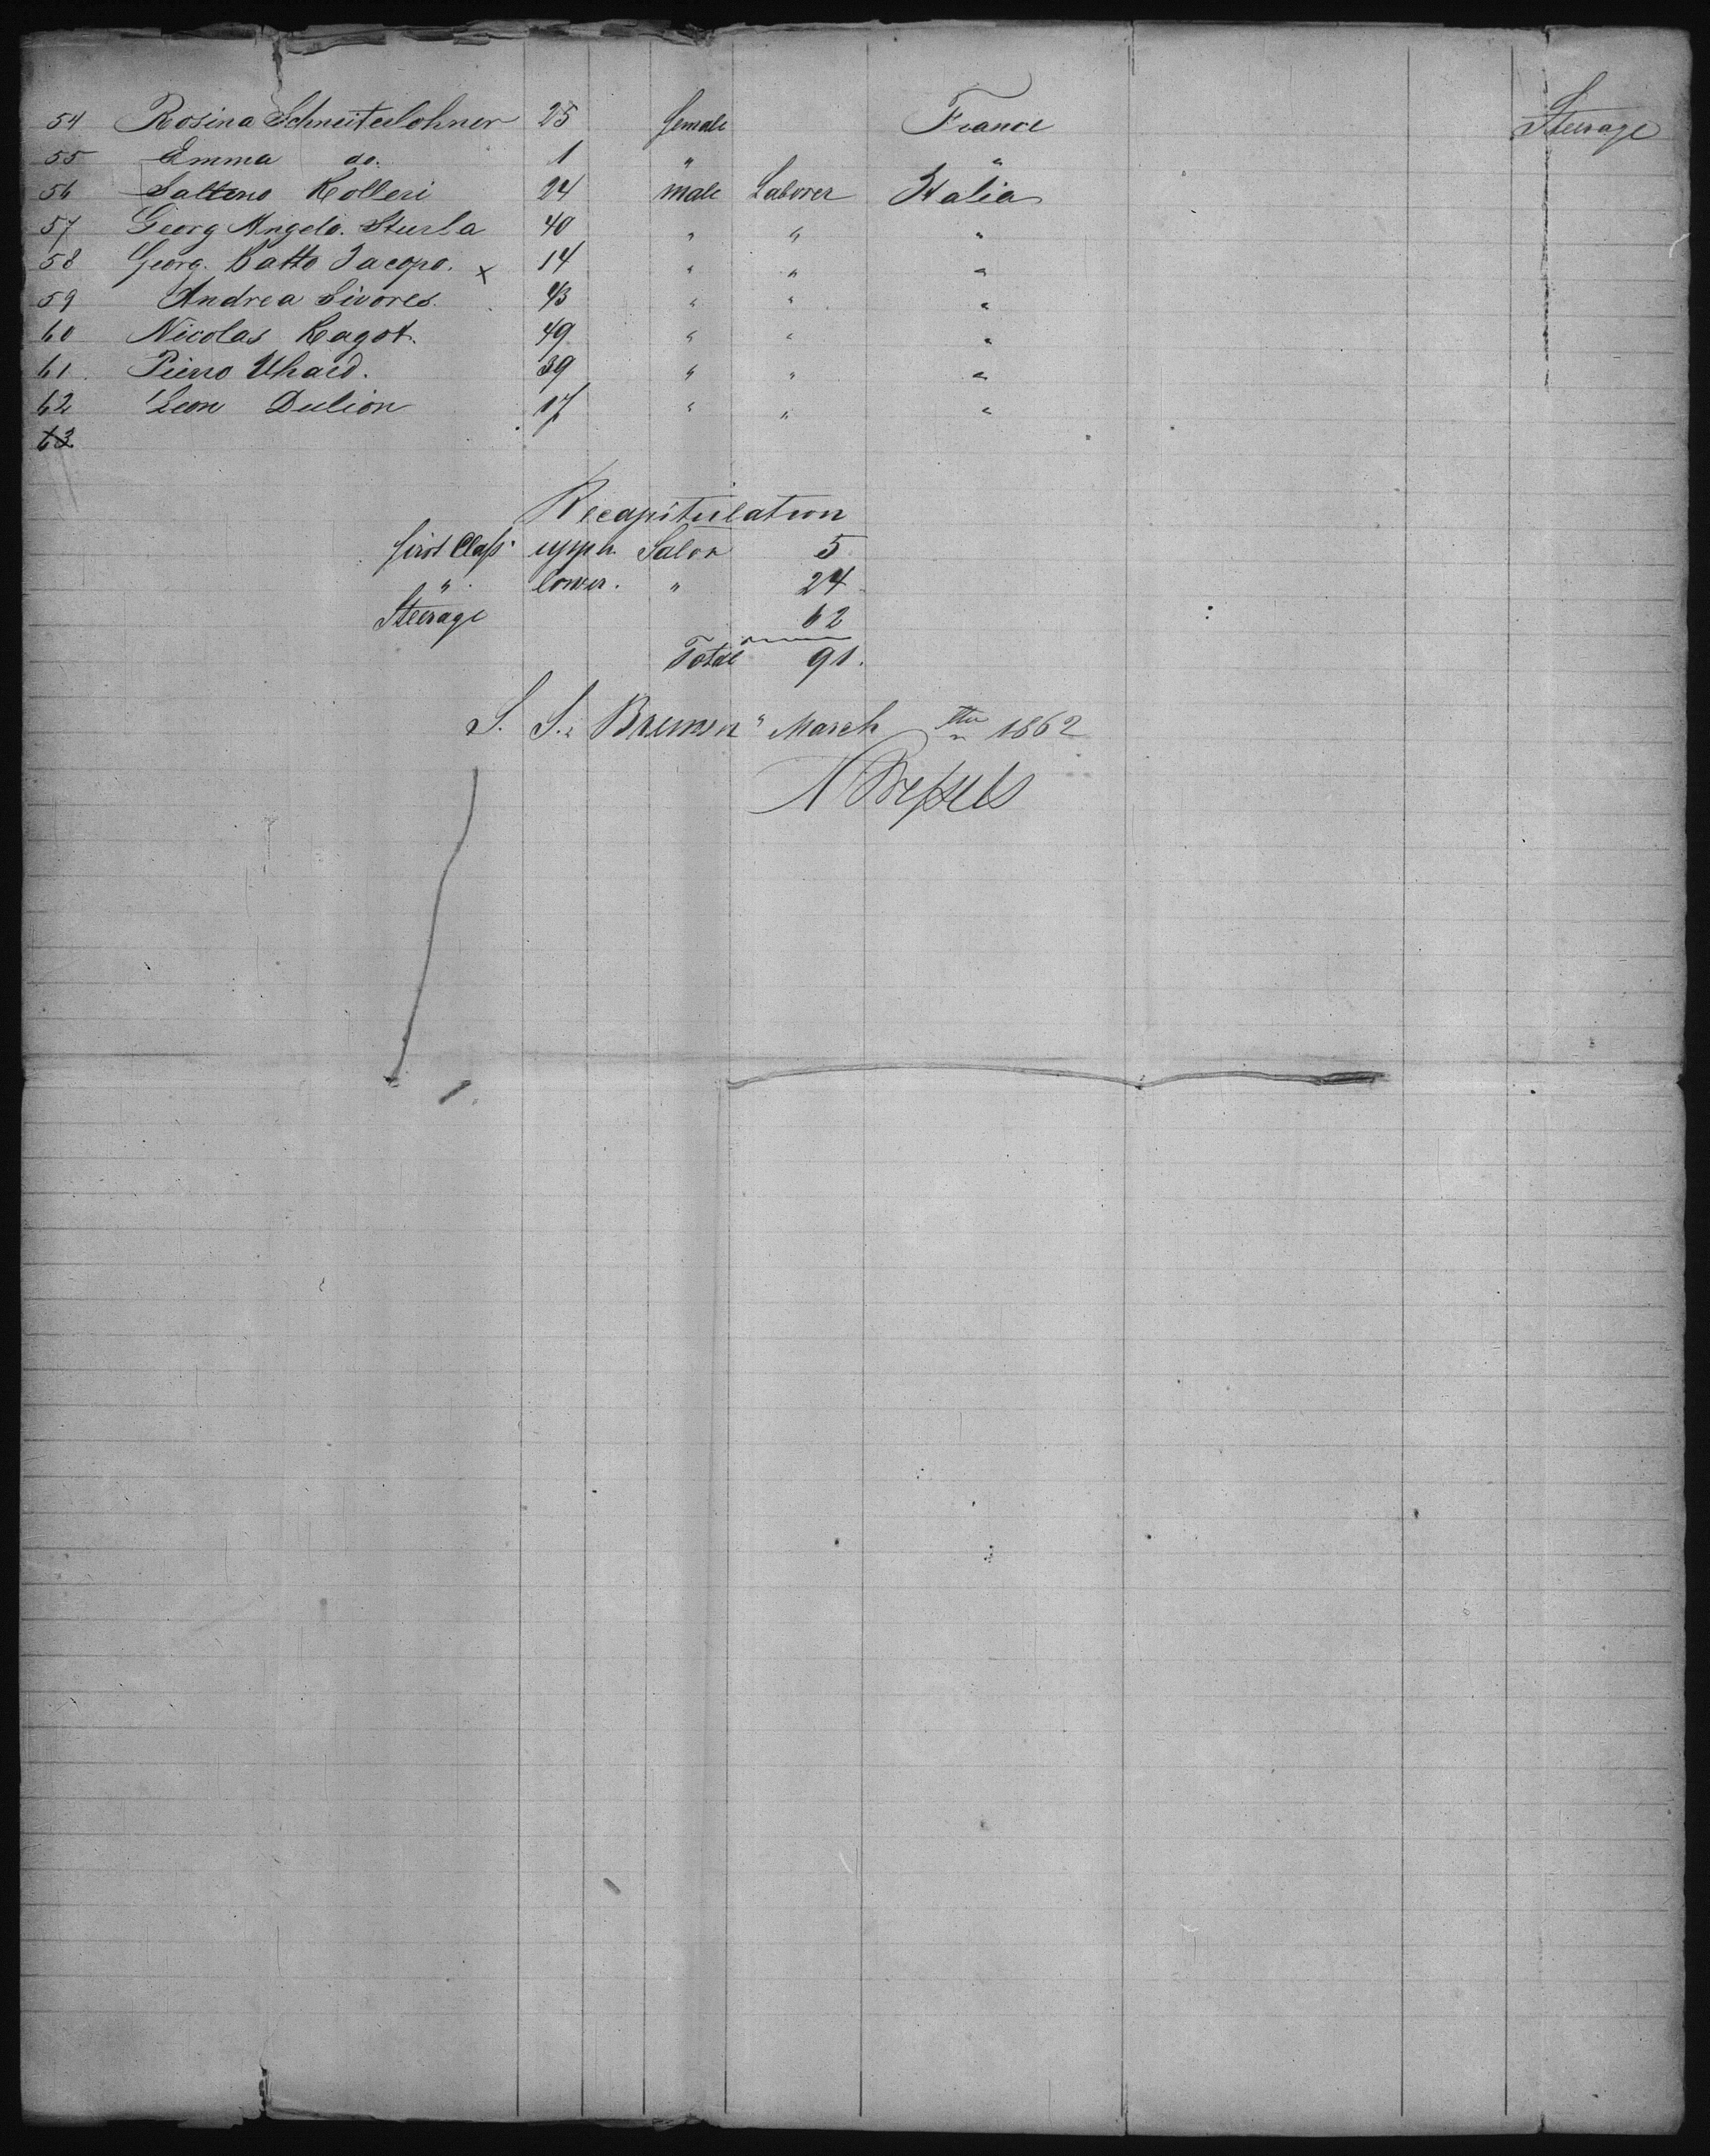 54 Rosina Schneitelohner 25 female France Steerage
55 Emma do. 1 " "
56 Kolleri 24 male Laborer Italia
57 Georg Angelo. Sturla 40 " " "
58 Georg. Batto Jacopo. x 14 " " "
59 Andrea Sivores. 43 " " "
60 Nicolas Ragot. 49 " " "
61. Pierro Uhard. 39 " " "
62 Leon Dulion 17 " " "
63
Recapitulation
first Class upper Salon 5
" lower. " 24
Steerage 62
Total 91.
S. S. "Bremen" March 1862